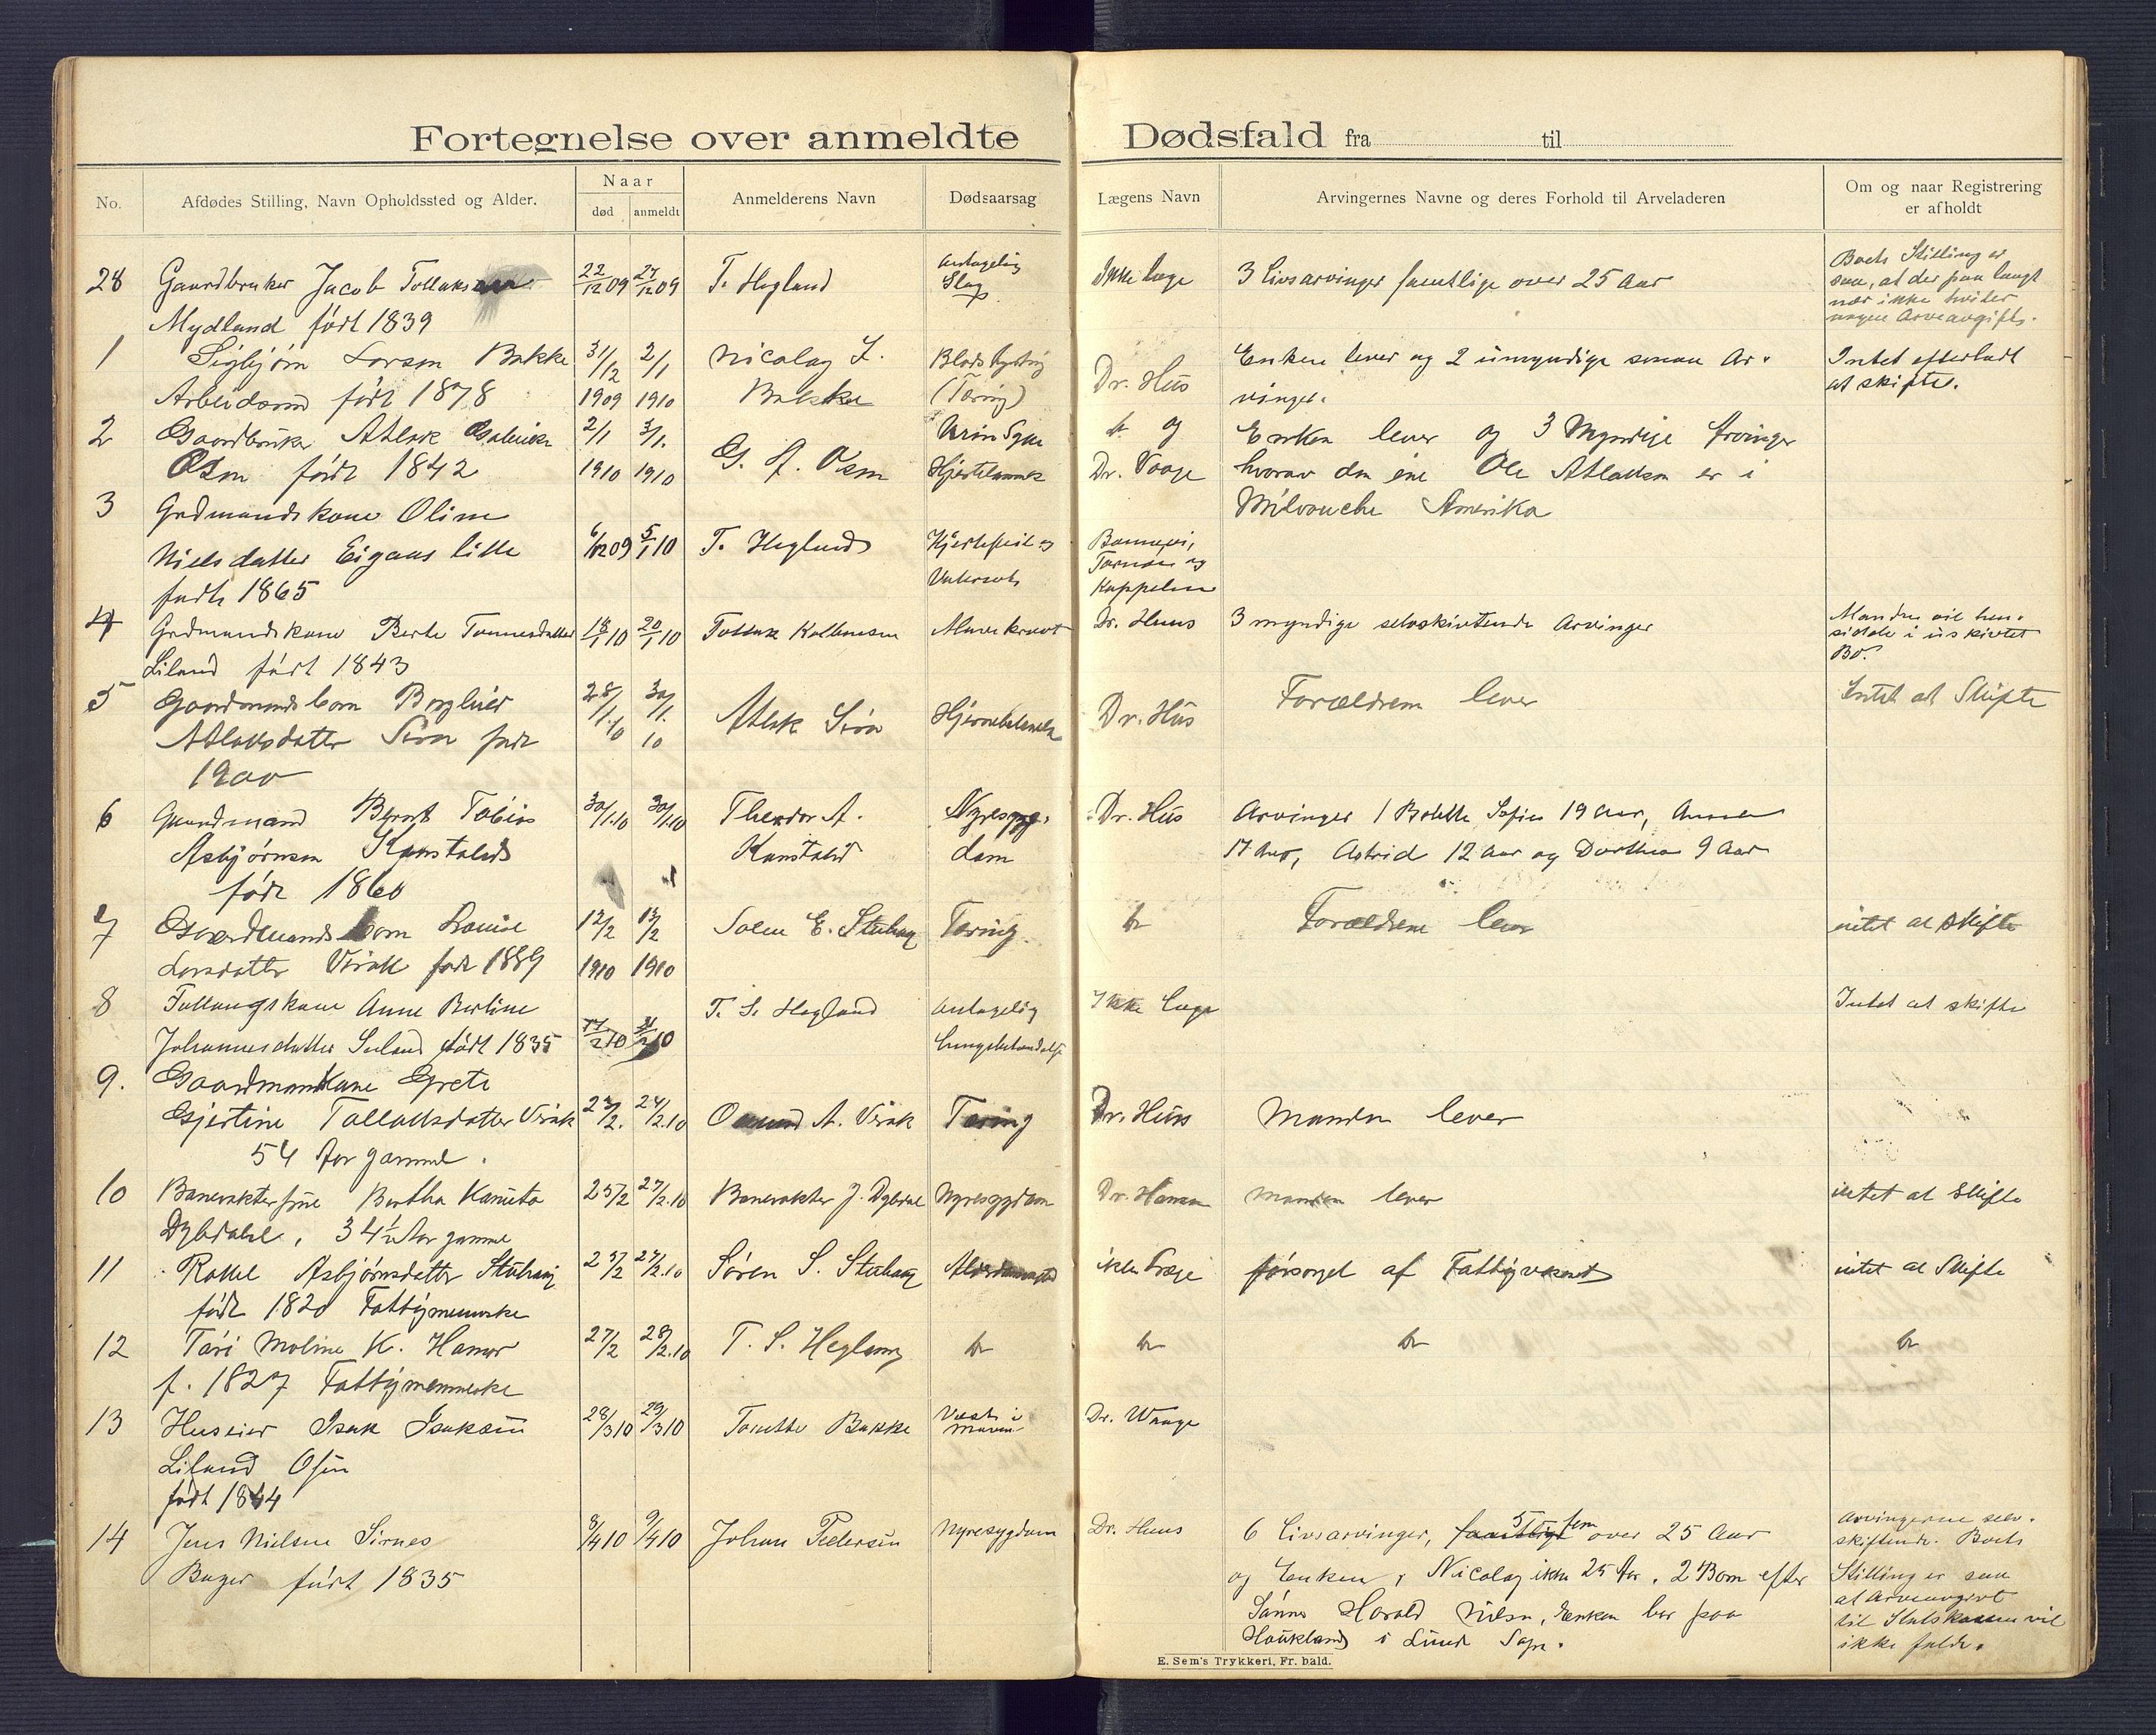 Fortegnelse over anmeldte Dødsfald fra til
No.
Afdødes Stilling, Navn Opholdssted og Alder.
Naar
død anmeldt
Anmelderens Navn
Dødsaarsag
Lægens Navn
Arvingernes Navne og deres Forhold til Arveladeren
Om og naar Registrering
er afholdt
28 Gaardbruker Jacob
Mydland født 1839
22/12 09 27/12 09
T. Hegland
Antagelig
Slag
Ikke læge
3 Livsarvinger samtlige over 25 Aar
Boets Stilling er
saa, at der paa langt
nær ikke
nogen Arveavgift.
1 Sigbjørn Larsen Bakke
Arbeidsmd født 1878
31/12 1909 2/1 1910
Nicolay
Bakke
(Tæring)
Dr. Hus
Enken lever og 2 umyndige sønner Ar-
vinger.
Intet efterladt
at skifte.
2 Gaardbruker Atlak
Osen født 1842
2/1 1910 3/1 1910
G. A. Osen
Urin Syke
Hjertelammelse
do og
Dr. Vaage
Enken lever og 3 Myndige Arvinger
hvorav den ene Ole Atlaksen er i
Milvauche Amerika
3 Grdmandskone Oline
Nielsdatter Eigaas lille
født 1865
6/12 09 5/1 10
T. Hegland
Hjertefeil og
Vatersot
og
Kappelen
4 Grdmandskone Berte Tonnesdatter
Liland født 1843
18/1 10 20/1 10
Mavekræft
Dr. Huus
3 myndige selvskiftende Arvinger
Manden vil hen-
sidde i uskiftet
Bo.
5 Gaardmandsbarn Borghild
Atlaksdatter Sira født
1900
28/1.10 30/1.10
Atlak Sira
Dr. Hus
Forældrene lever
Intet at Skifte
6 Gaardmand Bernt Tobias
Asbjørnsen
født 1860
30/1.10 30/1.10
Theodor A.
Nyresyg-
dom
Dr. Hus
Arvinger / Bolette Sofie 19 Aar, Anna
17 Aar, Astrid 12 Aar og Dorthea 9 Aar
7 Gaardmandsbarn Louise
Larsdatter Virak født 1889
12/2 1910 13/2 1910
E. Stuhaug
Tæring
do
Forældrene lever
intet at Skifte
8 Anne Berline
Johannesdatter født 1835
T. S. Hegland
Antagelig
Lungebetændelse
Ikke Læge
Intet at skifte
9. Gaardmandkone Grete
Gjertine Tallaksdatter Virak
54 Aar gammel.
23/2. 24/2.10
A. Virak
Tæring
Dr. Huus
Manden lever
10 Banevokterfrue Bertha
Dybdahl, 34½ Aar gammel
25/2 27/2.10
Banevokter J. Dybdal
Nyresygdom
Dr. Hansen
Manden lever
intet at Skifte
11 Rakel Asbjørnsdatter Stuhaug
født 1820 Fattigmenneske
25/2 27/2.10
Søren S. Stuhaug
ikke Læge
forsørget af Fattigvæsenet
intet at Skifte
12 Tari Moline K. Hamar
f. 1827 Fattigmenneske
27/2 28/2.10
T. S. Hegland
do
do
do
do
13 Huseier Isak Isaksen
Liland Osen
født 1844
28/3 10 29/3 10
Tonette Bakke
Vækst i
Maven
Dr. Waage
14 Jens Nielsen Sirnes
Bager født 1835
8/4 10 9/4 10
Johan Pedersen
Nyresygdom
Dr. Huus
6 Livsarvinger, samtlige 5 fem over 25 Aar
og Enken, Nicolay ikke 25 Aar. 2 Barn efter
Sønnen Harald Nielsen, Enken bor paa
Haukland i Lunde Sogn.
Arvingerne selv-
skiftende. Boets
Stilling er saa
at Arveavgivt
til Statskassen vil
ikke falde.
E. Sem's Trykkeri, Fr. hald.